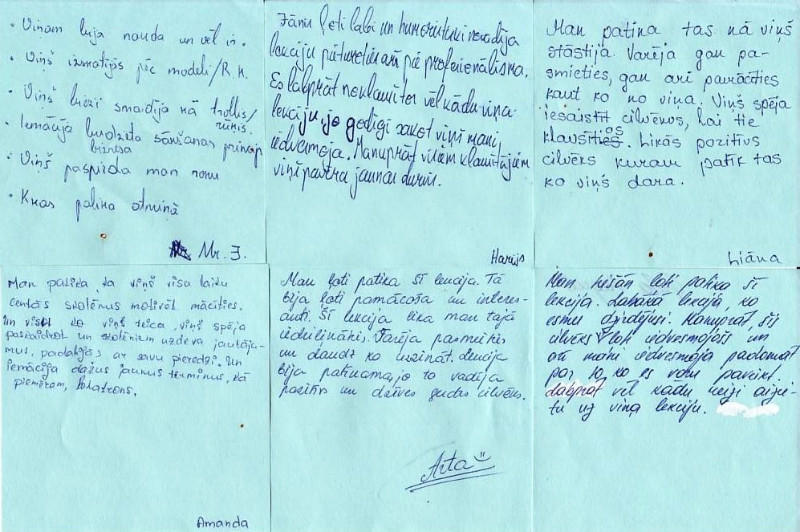 • Viņam bija nauda un vēl ir.
• Viņš izmatojās pēc modeļi/R.K.
• Viņš bieži smaidīja kā trollis/
ruņcis.
• Iemācīja budžeta šanas
biznesa
• Viņš paspieda man roku
• Kkas palika atmiņā
Mr. J.
Jānis ļoti labi un humoristiski novadīja
lekciju pieturoties arī pie profesionālisma.
Es labprāt noklausītos vēl kādu viņa
lekciju, jo godīgi sakot viņš mani
iedvesmoja. Manuprāt visiem klausītājiem
viņš pavēra jaunas durvis.
Harijs
Man patika tas kā viņš
stāstīja. Varēja gan pa-
smieties, gan arī pamācīties
kaut ko no viņa. Viņš spēja
iesaistīt cilvēkus, lai tie
klausītos. Likās pozitīvs
cilvēks kuram patīk tas
ko viņš dara.
Liāna
Man patika, ka viņš visu laiku
centās skolēnus motivēt mācīties.
Un visu ko viņš teica, viņš spēja
pasniedzot un skolēniem uzdeva jautāju-
mus, padalījās ar savu pieredzi. Un
iemācīja dažus jaunus terminus, kā
piemēram,
Amanda
Man ļoti patika šī lekcija. Tā
bija ļoti pamācoša un interes-
anti. Šī lekcija lika man tajā
iedziļināties. Varēja pasmieties
un daudz ko uzzināt. Lekcija
bija patīkama, jo to vadīja
pozitīvs un dzīves gudrs cilvēks.
Arta
Man tiešām ļoti patika šī
lekcija. Labākā lekcija, ko
esmu dzirdējusi. Manuprāt, šis
cilvēks ļoti iedvesmojošs un
arī mani iedvesmoja padomāt
par to, ko es varu paveikt.
Labprāt vēl kādu reizi aizie-
tu uz viņa lekciju.